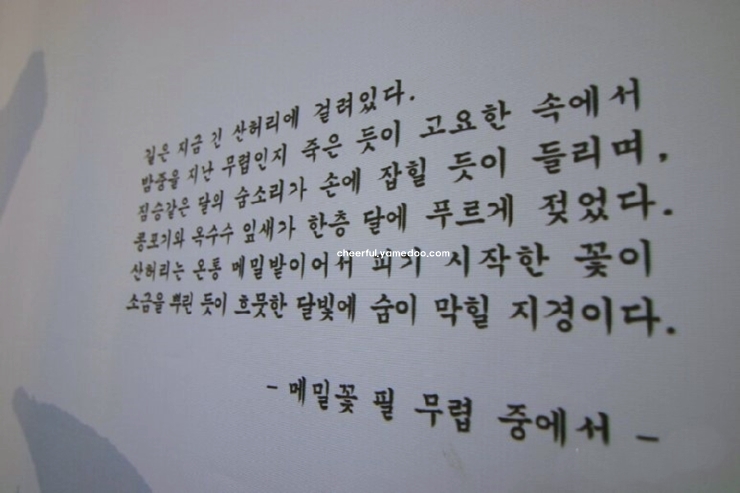 길은 지금 긴 산허리에 걸려있다.
밤중을 지난 무렵인지 죽은 듯이 고요한 속에서
짐승같은 달의 숨소리가 손에 잡힐 듯이 들리며,
콩포기와 옥수수 잎새가 한층 달에 푸르게 젖었다.
산허리는 온통 메밀밭이어서 피기 시작한 꽃이
소금을 뿌린 듯이 흐뭇한 달빛에 숨이 막힐 지경이다.
- 메밀꽃 필 무렵 중에서 -
cheerful.yamedoo.com